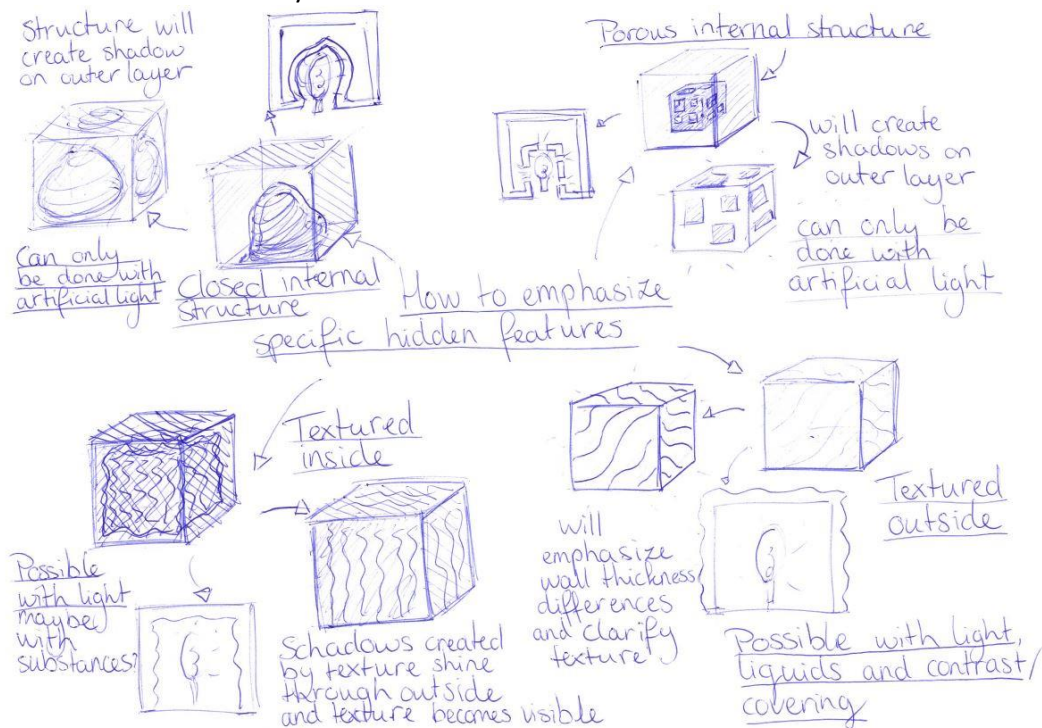 Structure will
create shadow
on outer layer
Can only
be done with
artificial light
Closed internal
structure
Porous internal structure
will create
shadows on
outer layer
can only be
done with
artificial light
How to emphasize
specific hidden features
Textured
inside
Possible
with light
maybe
with
substances?
Schadows created
by texture shine
through outside
and texture becomes visible
Textured
outside
will
emphasize
wall thickness
differences
and clarify
texture
Possible with light,
liquids and contrast/
covering